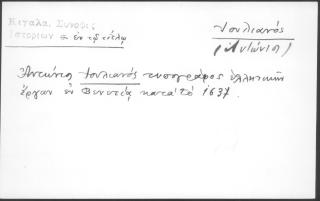 Κιγάλα, Σύνοψις
Ἱστοριῶν = ἐν τῷ τέλῳ
Ἰουλιανός
(Ἀντώνιος)
Ἀντώνιος Ἰουλιανός τυπογράφος ἑλληνικῶν
ἔργων ἐν Βενετίᾳ κατά τό 1637.